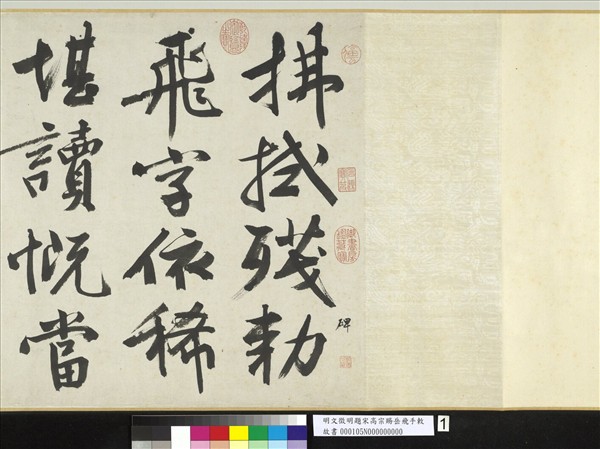 碑
拂拭殘勅
飛字依稀
堪讀慨當
明文徵明題宋高宗賜岳飛手敕
故書 000105N000000000
1